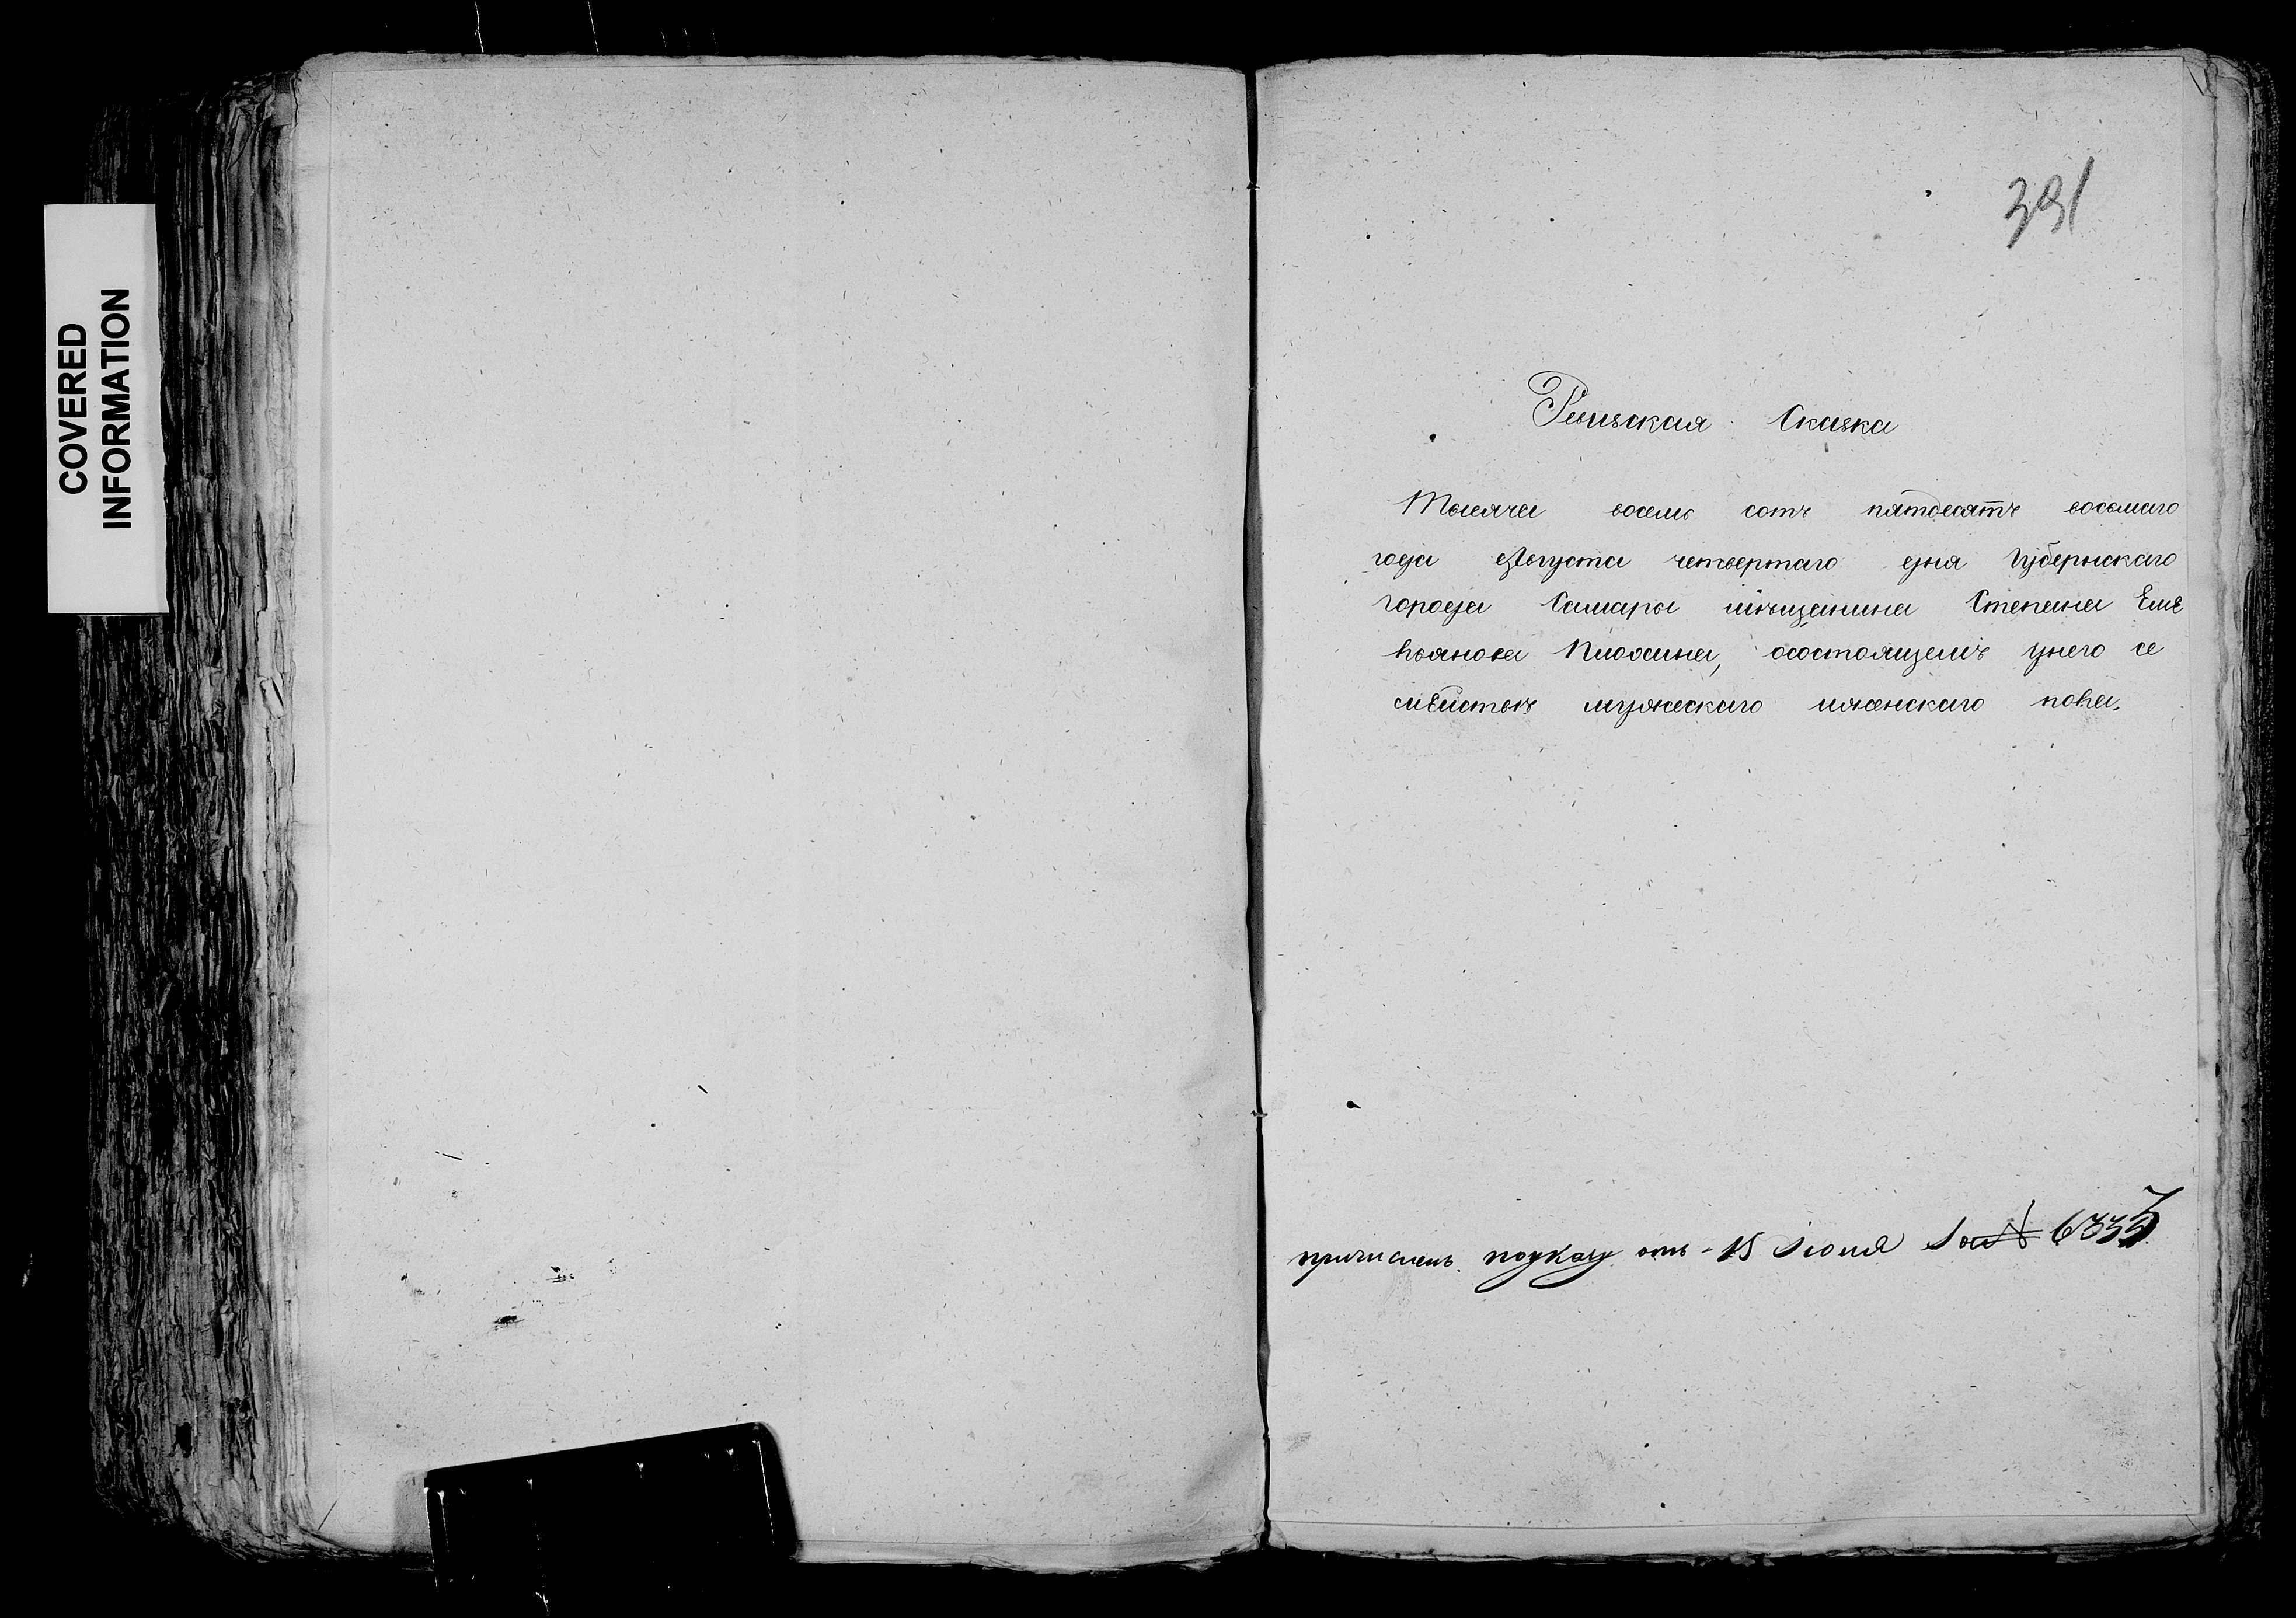 COVERED
INFORMATION
391
Ревизская Сказка
Тысяча восемь сотъ пятдесятъ восьмаго
года Августа четвертаго дня Губернскаго
города Самары мѣщанина Степана Емѣ
льянова Плохина, осостоящемъ унего се
мѣйствѣ мужескаго иженскаго пола.
причисленъ поуказу отъ 15 Іюня за № 6335